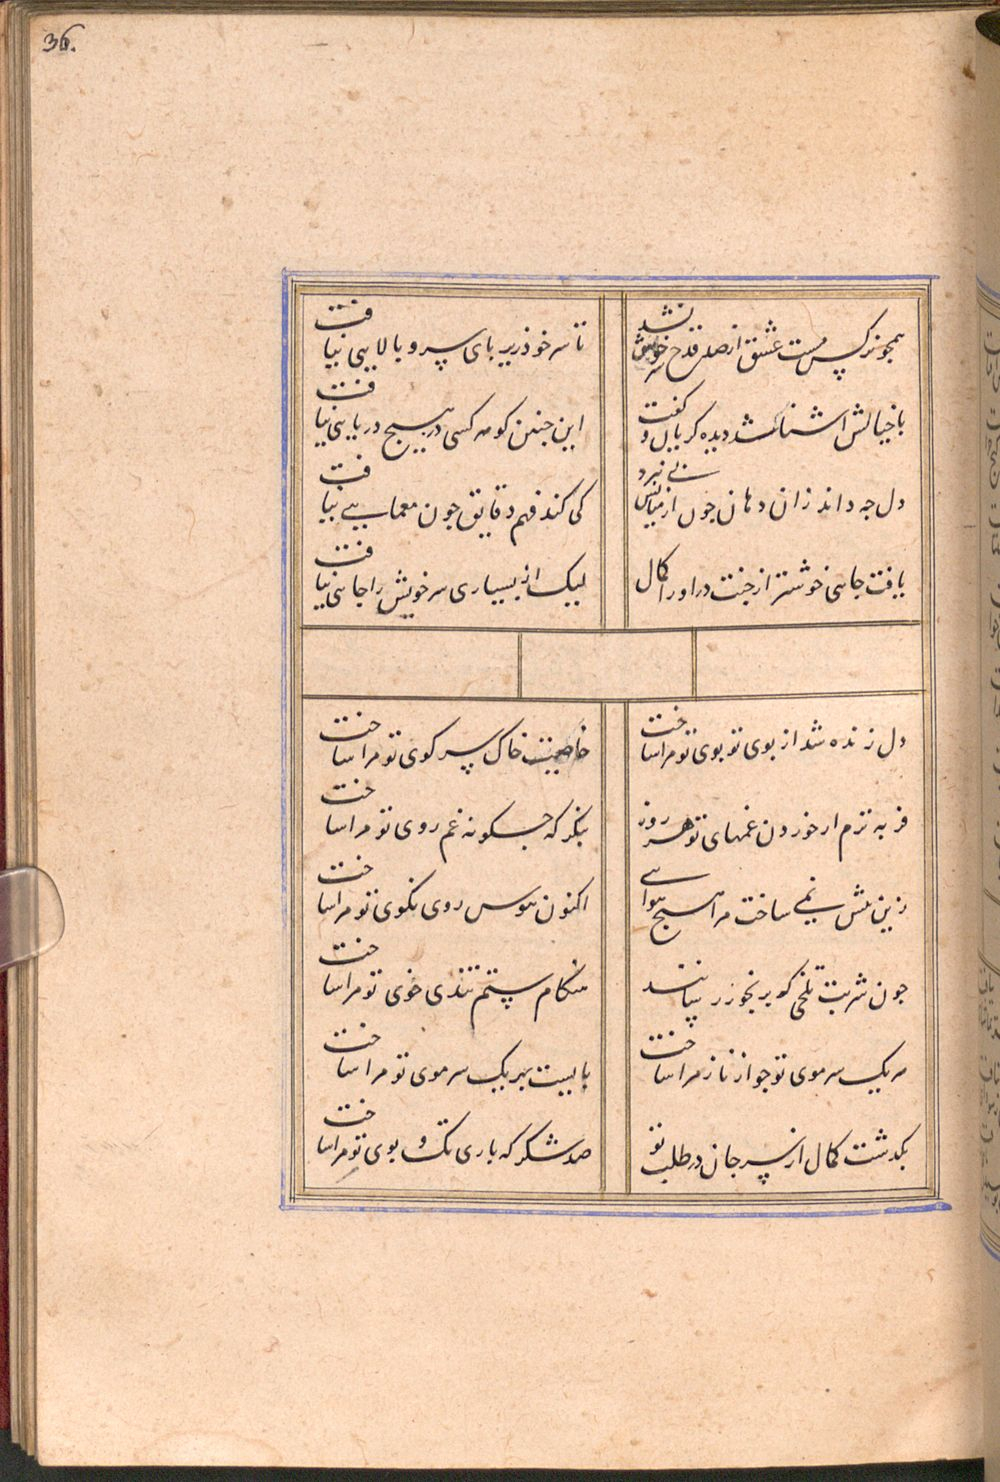 36.
همجو نرکس مست عشق از صد قدح سر خوش نشد
تا سر خود زیر بای سرو بالایی نیافت
با خیالش اشنا کشد دیده کریان و کفت
این جنین کوهر کسی در هیچ دریایی نیافت
دل جه داند زان دهان جون از میانش بی نبرد
کی کند فهم دقایق جون معمایی نیافت
یافت جایی خوشتر از جنت در او را کمال
لیک از بسیاری سر خویش را جایی نیافت
دل زنده شد از بوی تو بوی تو مرا ساخت
خاصیت خاک سر کوی تو مرا ساخت
فربه ترم از خوردن غمهای تو هر روز
بنکر که جکونه غم روی تو مرا ساخت
زین بیش نمی ساخت مرا هیچ هوایی
اکنون هوس روی نکوی تو مرا ساخت
جون شربت تلخی که برنجور رسانند
هنکام ستم تندی خوی تو مرا ساخت
هر یک سر موی تو جو از ناز مرا ساخت
با بیت بهر یک سر موی تو مرا ساخت
بکذشت کمال از سر جان در طلب تو
صد شکر که باری تک و بوی تو مرا ساخت